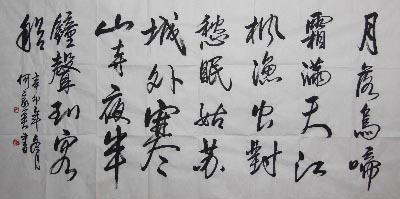 月落烏啼
霜滿天江
枫漁火對
愁眠姑苏
城外寒
山寺夜半
鐘聲到客
船
辛卯年月
何書